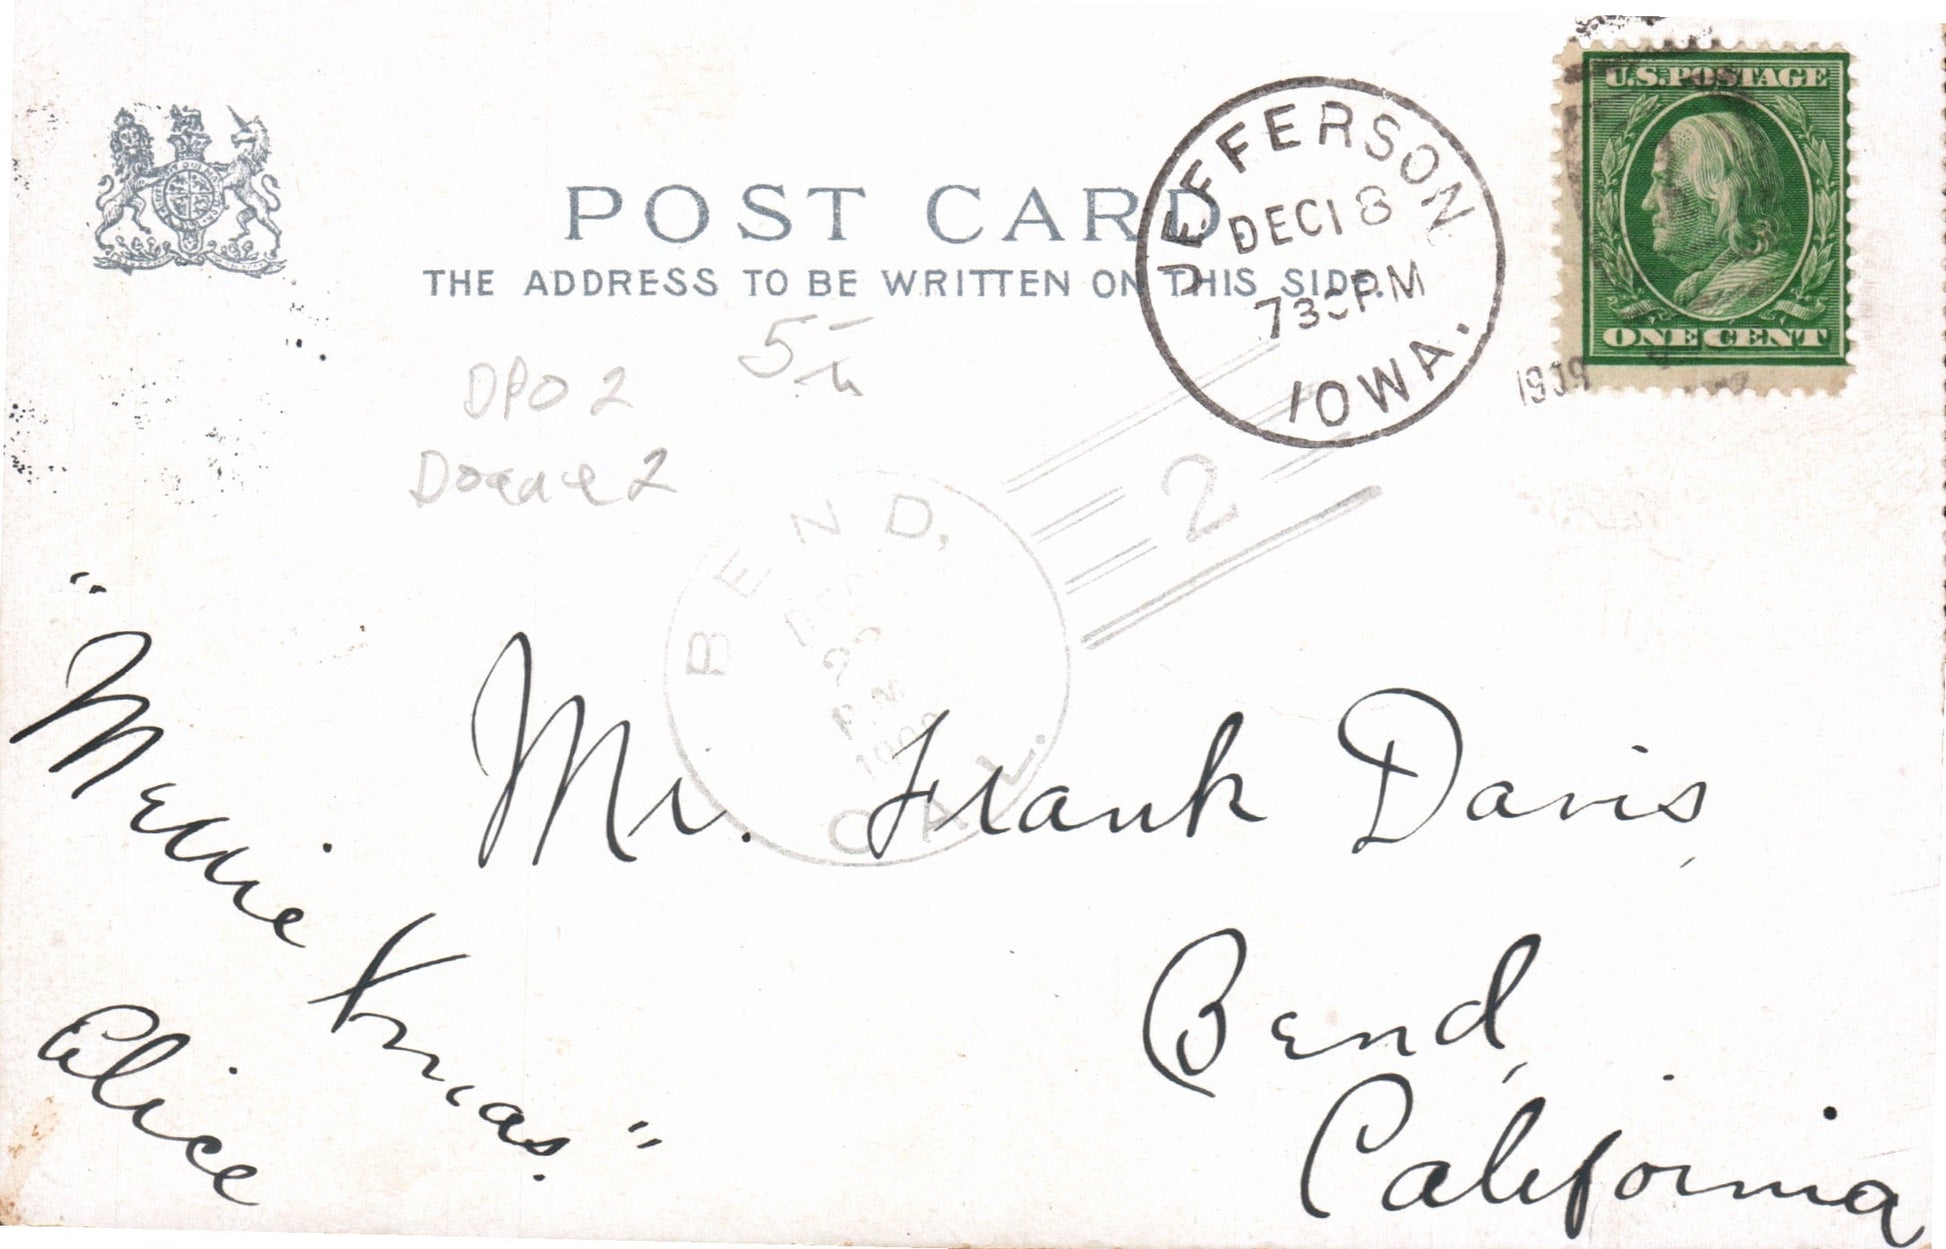 POST CARD
THE ADDRESS TO BE WRITTEN ON THIS SIDE.
JEFFERSON
DEC 18
730 PM
IOWA.
U.S. POSTAGE
ONE CENT
DPO 2
Doane 2
BEND,
2
CAL.
Mr. Frank Davis,
Bend,
California
"Merrie Xmas."
Alice